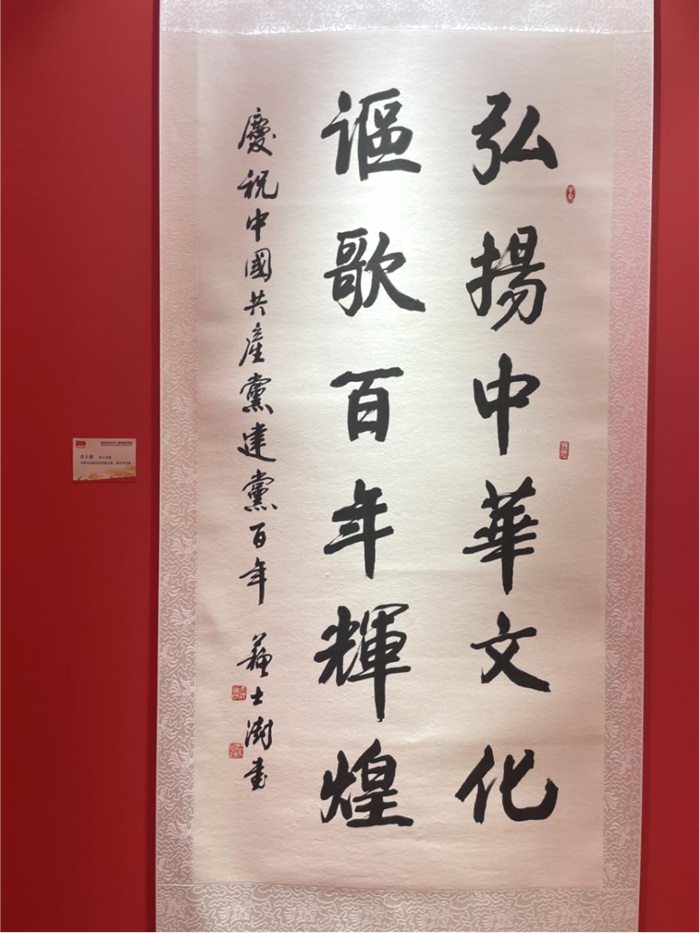 弘揚中華文化
謳歌百年輝煌
慶祝中國共產黨建黨百年 蘇士澍書